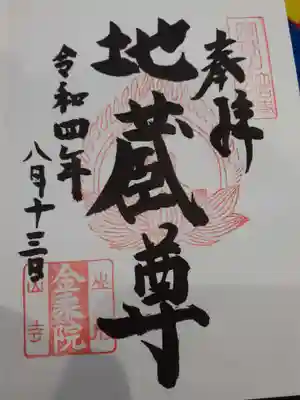 奉拝
地蔵尊
令和四年
八月十三日
金乗院
山寺